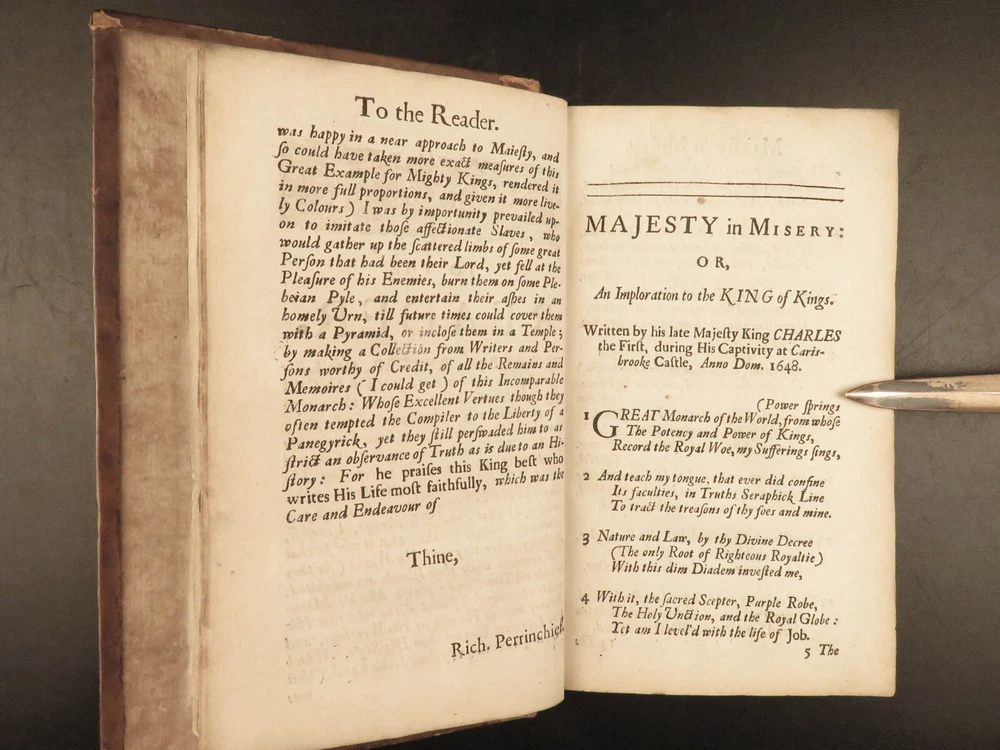 To the Reader.
was happy in a near approach to Maieſty, and
ſo could have taken more exact meaſures of this
Great Example for Mighty Kings, rendered it
in more full proportions, and given it more live-
ly Colours) I was by importunity prevailed up-
on to imitate thoſe affectionate Slaves, who
would gather up the ſcattered limbs of ſome great
Perſon that had been their Lord, yet fell at the
Pleaſure of his Enemies, burn them on ſome Ple-
beian Pyle, and entertain their aſhes in an
homely Urn, till future times could cover them
with a Pyramid, or incloſe them in a Temple;
by making a Collection from Writers and Per-
ſons worthy of Credit, of all the Remains and
Memoires (I could get) of this Incomparable
Monarch: Whoſe Excellent Vertues though they
often tempted the Compiler to the Liberty of a
Panegyrick, yet they ſtill perſwaded him to as
ſtrict an obſervance of Truth as is due to an Hi-
ſtory: For he praiſes this King beſt who
writes His Life moſt faithfully, which was the
Care and Endeavour of
Thine,
Rich. Perrinchief.
MAJESTY in MISERY:
OR,
An Imploration to the KING of Kings.
Written by his late Majeſty King CHARLES
the Firſt, during His Captivity at Caris-
brooke Caſtle, Anno Dom. 1648.
(Power ſprings
1 GREAT Monarch of the World, from whoſe
The Potency and Power of Kings,
Record the Royal Woe, my Sufferings ſings,
2 And teach my tongue, that ever did confine
Its faculties, in Truths Seraphick Line
To tract the treaſons of thy foes and mine.
3 Nature and Law, by thy Divine Decree
(The only Root of Righteous Royaltie)
With this dim Diadem inveſted me,
4 With it, the ſacred Scepter, Purple Robe,
The Holy Unction, and the Royal Globe:
Yet am I level'd with the life of Job.
5 The